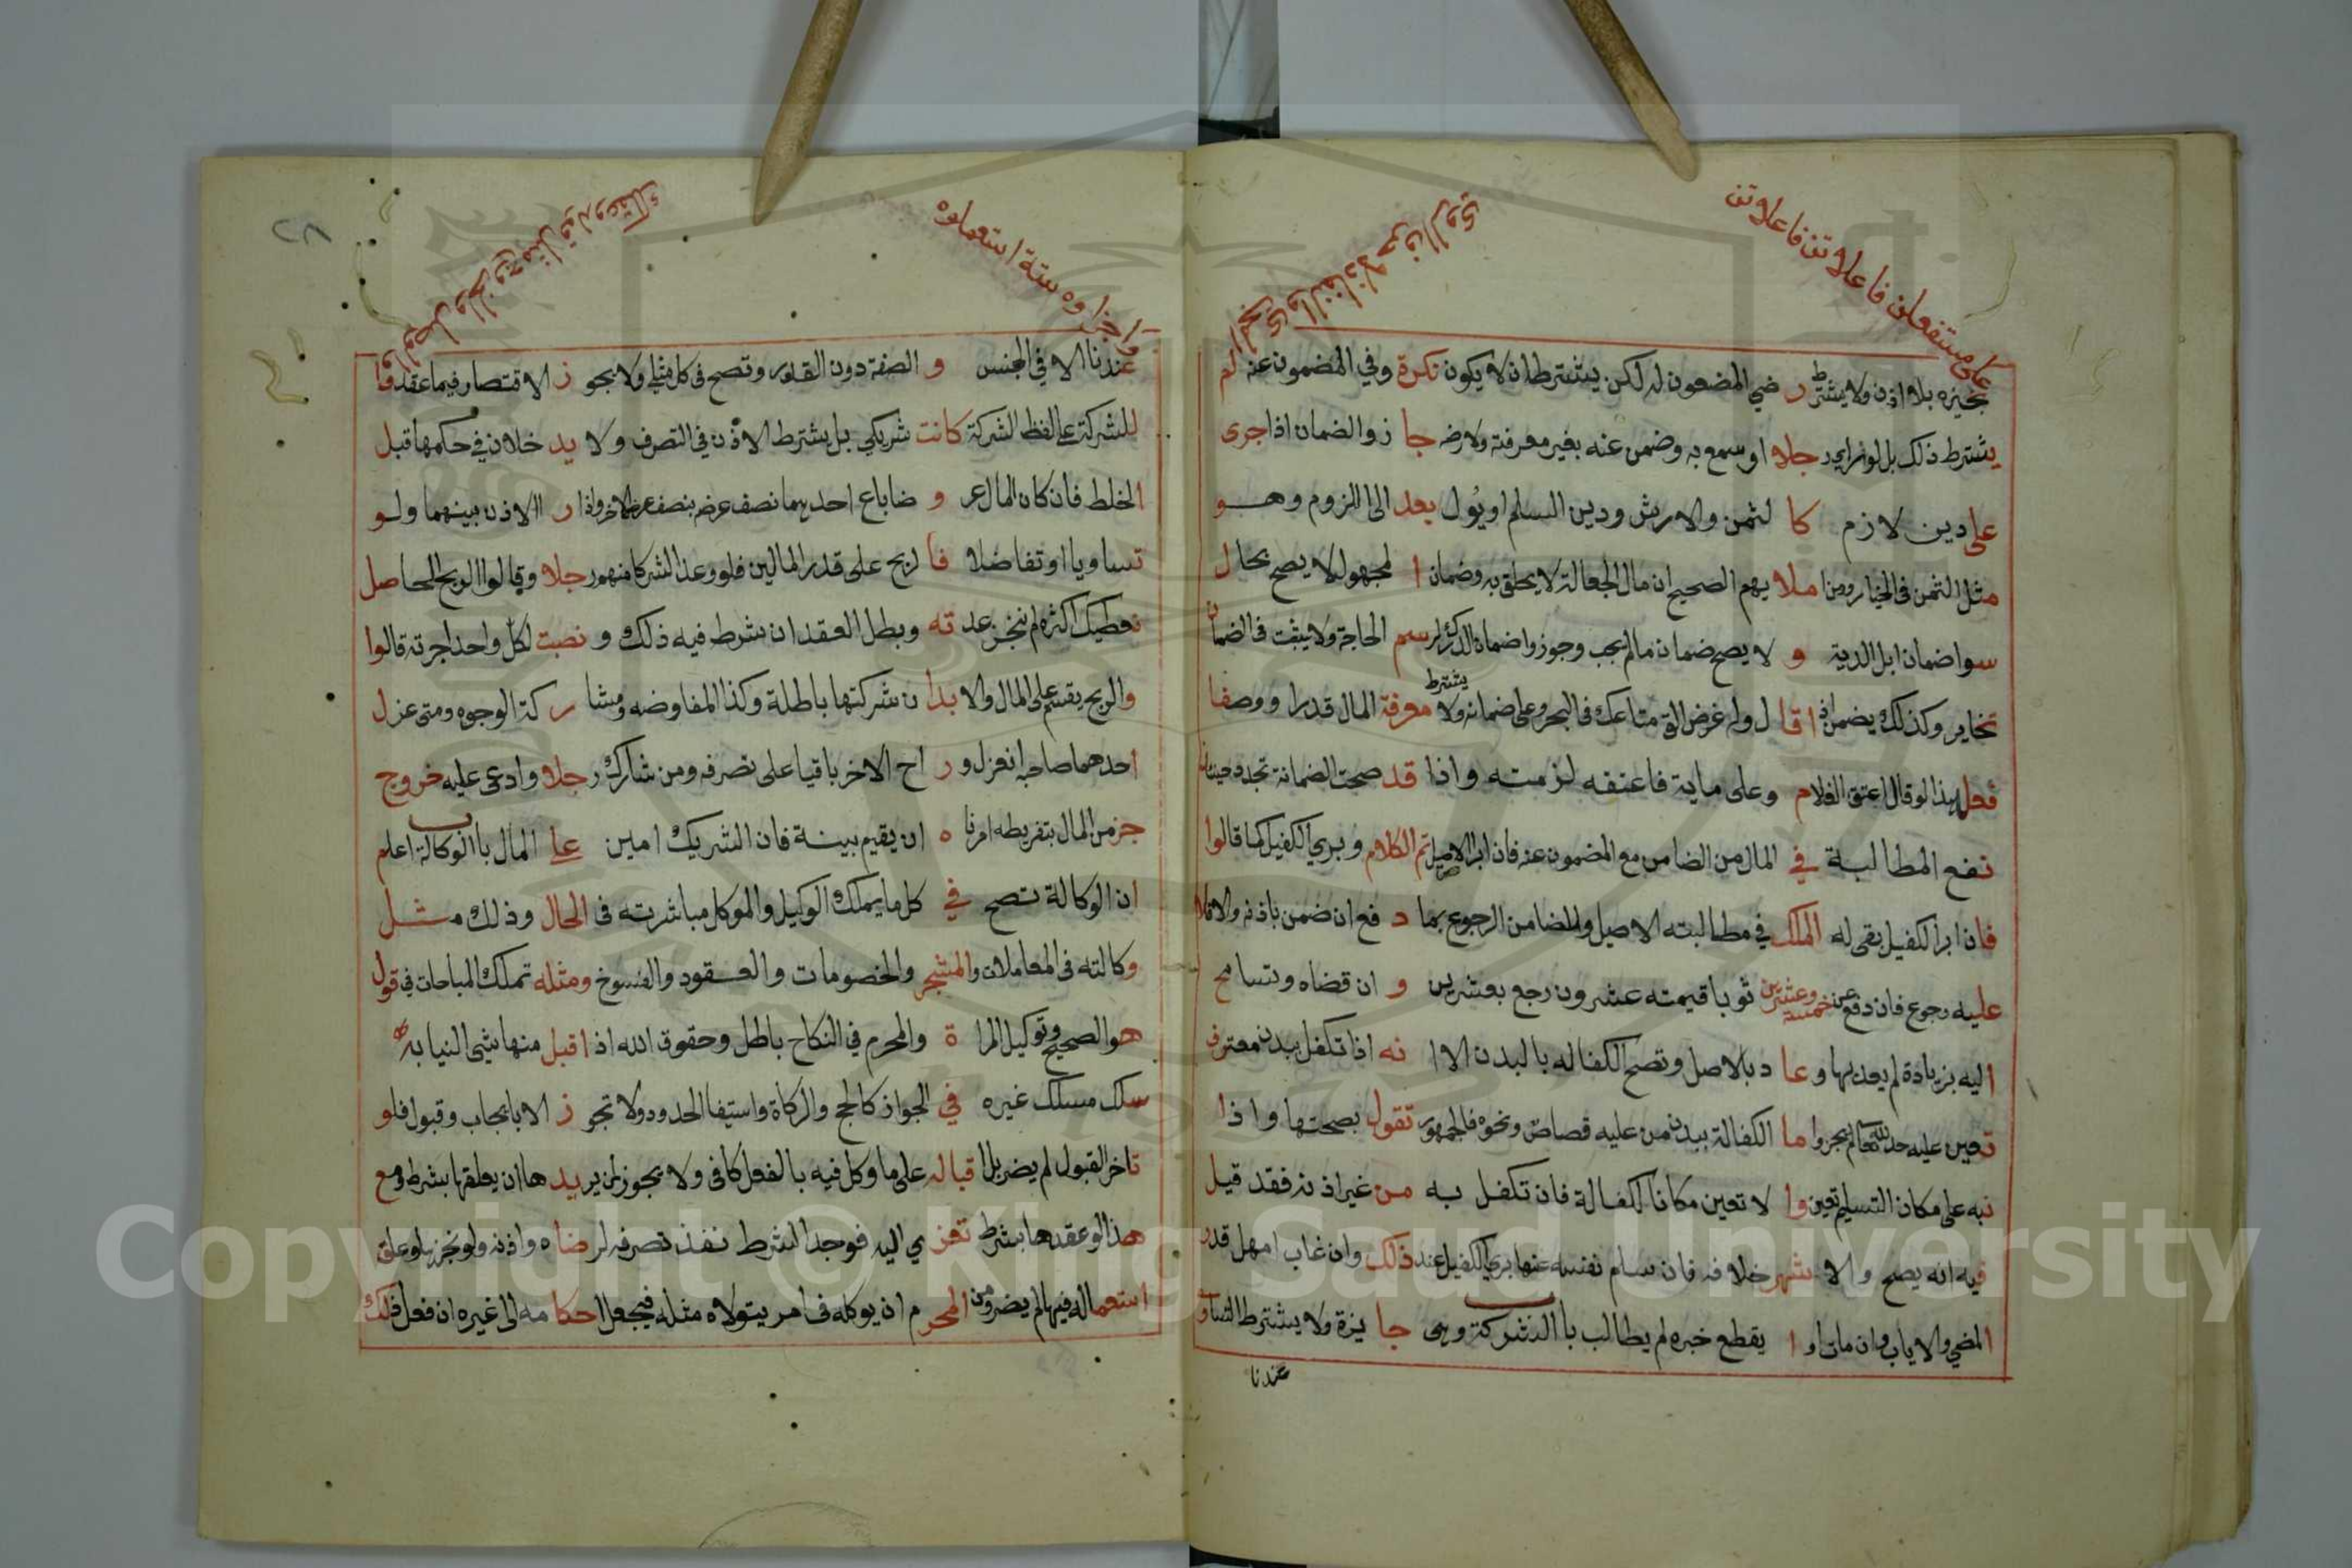 على مستفعلن فاعلاتن فاعلاتن
تجيزه بلا اذن ولا يشترط رضي المضمون له لكن يشترط ان لا يكون نكرة وفي المضمون عنه لم
يشترط ذلك بل لو راى رجلا او سمع به وضمن عنه بغير معرفة ولا رضه جاز والضمان اذا جرى
على دين لازم كالثمن والارش ودين السلم او يؤل بعد الى اللزوم وهو
مثل الثمن في الخيار ومن املايهم الصحيح ان مال الجعالة لا يحلق به وضمان المجهول لا يصح بحال
سوا ضمان ابل الدية ولا يصح ضمان مالم يجب وجوزوا ضمان الدرك لرسم الحاجة ولا يثبت في الضمان
تخاير وكذلك يضمن اذا قال وله غرض الق متاعك في البحر وعلى ضمانه ولا يشترط معرفة المال قدرا ووصفا
فعل هذا لو قال اعتق الغلام وعلى ماية فاعتقه لزمته واذا قد صحت الضمانة تجدد حينئذ
نفع المطالبة في المال من الضامن مع المضمون عنه فان ابرا الاصيل تم الكلام وبري الكفيل كما قالوا
فان ابرا الكفيل بقى له الملك في مطالبته الاصيل وللضامن الرجوع بما دفع ان ضمن باذنه والا فلا
عليه رجوع فان دفع عن خمسة وعشرين ثوبا قيمته عشرون رجع بعشرين وان قضاه وتسامح
اليه بزيادة لم يعد بها وعاد بالاصل وتصح الكفاله بالبدن الا انه اذا تكفل ببدن معترف
تعين عليه حد لله تعالى لم يجز واما الكفالة ببدن من عليه قصاص ونحوه فالجمهور تقول بصحتها واذا
نبه على مكان التسليم تعين والا تعين مكان الكفالة فان تكفل به من غير اذنه فقد قيل
فيه انه يصح والاشهر خلافه فان سلم نفسه عنها بري الكفيل عند ذلك وان غاب امهل قدر
المضي والاياب وان مات او انقطع خبره لم يطالب باب الشركة وهى جايزة ولا يشترط التساوى
عندنا
واجزاوه ستة استعملوه
٢٨
عندنا الا في الجنس والصفة دون القدر وتصح في كل مثلي ولا يجوز الاقتصار فيما عقد فا
للشركة على لفظ الشركة كانت شريكي بل يشترط الاذن في التصرف ولا يدخلان في حكمها قبل
الخلط فان كان المال عروضا باع احدهما نصف عرضه بنصف عرض الاخر واذارا الاذن بينهما ولو
تساويا او تفاضلا فالربح على قدر المالين فلو وعد الشركا منهم رجلا وقالوا الربح الحاصل
نعطيك اكثره لم ننجز عدته وبطل العقد ان شرط فيه ذلك ونصبت لكل واحد اجرته قالوا
والربح يقسم على المال والابدان شركتها باطلة وكذا المفاوضه ومشاركة الوجوه ومتى عزل
احدهما صاحبه انعزل وراح الاخر باقيا على تصرفه ومن شارك رجلا وادعى عليه خروج
جز من المال بتفريطه امرناه ان يقيم بينة فان الشريك امين على المال باب الوكالة اعلم
ان الوكالة تصح في كل ما يملك الوكيل والموكل مباشرته في الحال وذلك مثل
وكالته في المعاملات والمتجر والخصومات والعقود والفسوخ ومثله تملك المباحات في قول
هو الصحيح وتوكيل المراة والمحرم في النكاح باطل وحقوق الله اذا قبل منها شي النيابه
سلك مسلك غيره في الجواز كالحج والزكاة واستيفا الحدود ولا تجوز الا بايجاب وقبول فلو
تاخر القبول لم يضر بل اقباله على ما وكل فيه بالفعل كافى ولا يجوز لمن يريدها ان يعلقها بشرط ومع
هذا لو عقدها بشرط تعزي اليه فوجد الشرط نفذ تصرفه لرضاه واذنه ولو نجزها وعلق
استعماله فيها لم يضر ومن المحرم ان يوكله في امر يتولاه مثله فيجعل احكامه الى غيره ان فعل ذلك